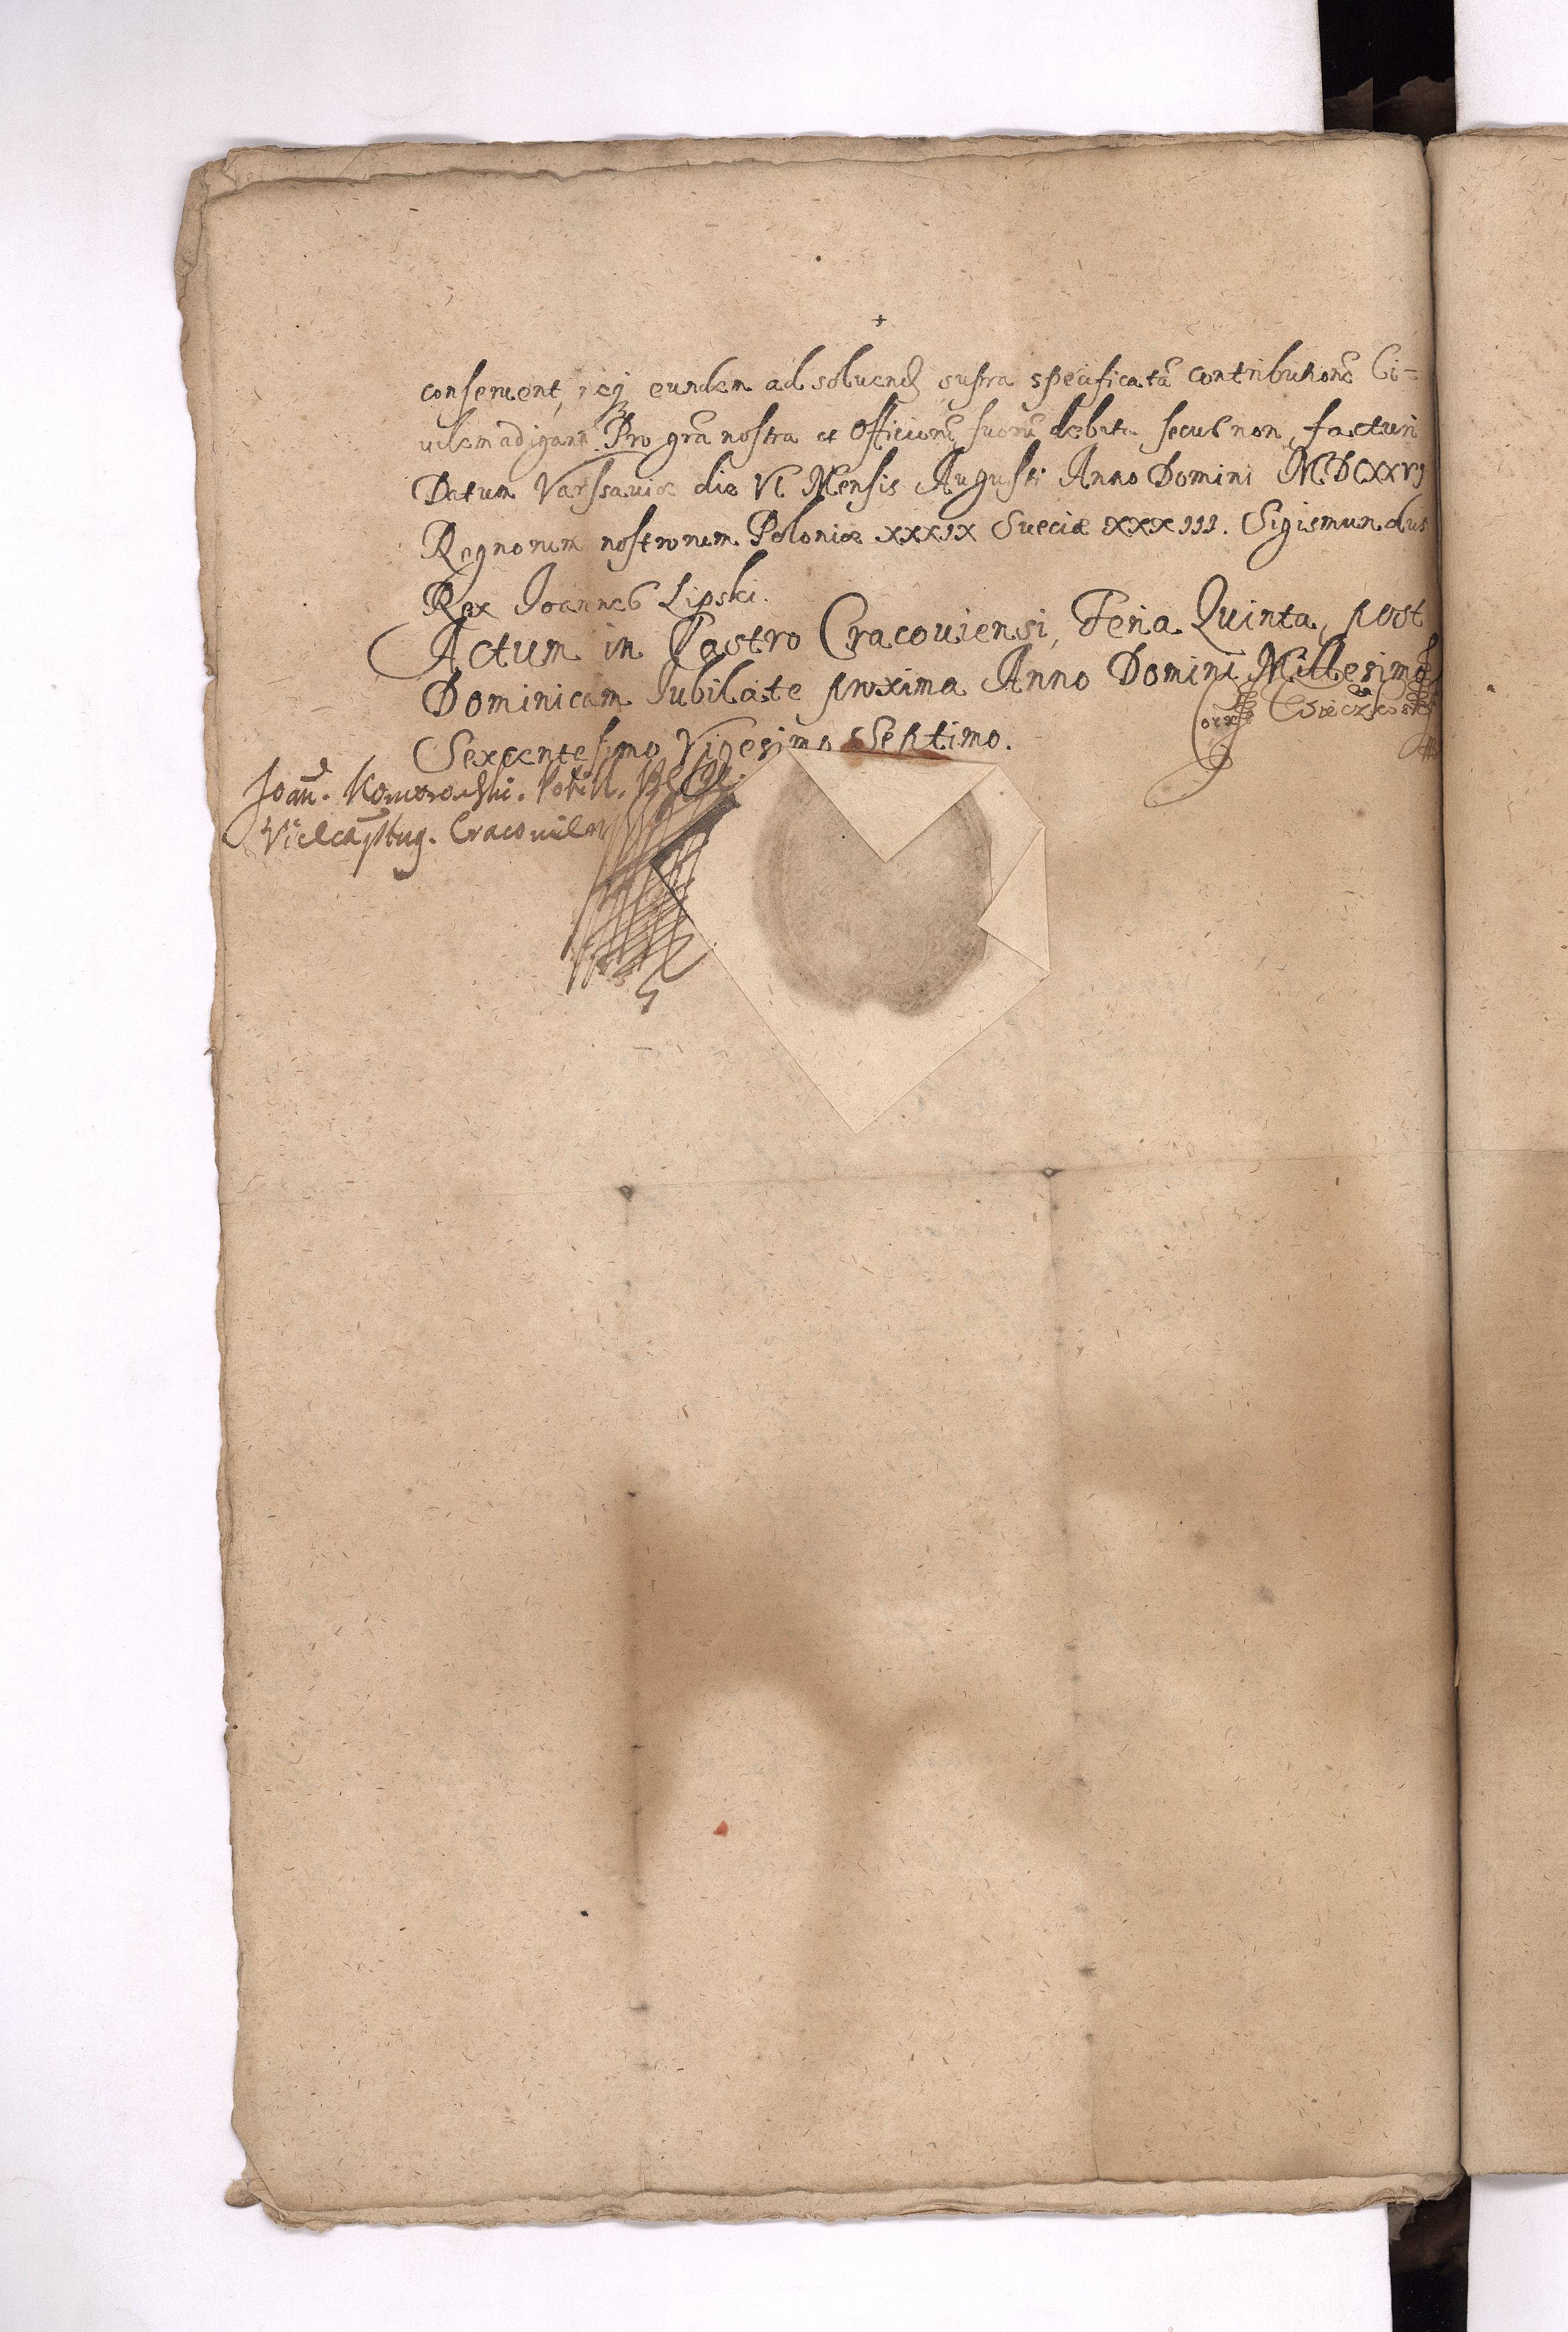 +
conservent, neq; eundem ad solvend supra specificatā contributionē Ci-
vilem adigant. Pro grā nostra et Officiorū suorū debito secus non facturi
Datum Varssaviæ die VI Mensis Augusti Anno Domini MDCXXVI
Regnorum nostrorum Poloniæ XXXIX Sueciæ XXXIII. Sigismundus
Rex Joannes Lipski.
Actum in Castro Cracoviensi, Feria Quinta, post
Dominicam Jubilate proxima Anno Domini Millesimo
Sexcentesimo Vigesimo Septimo.
Joan. Komorowski.
Vicecaptus. Cracovien